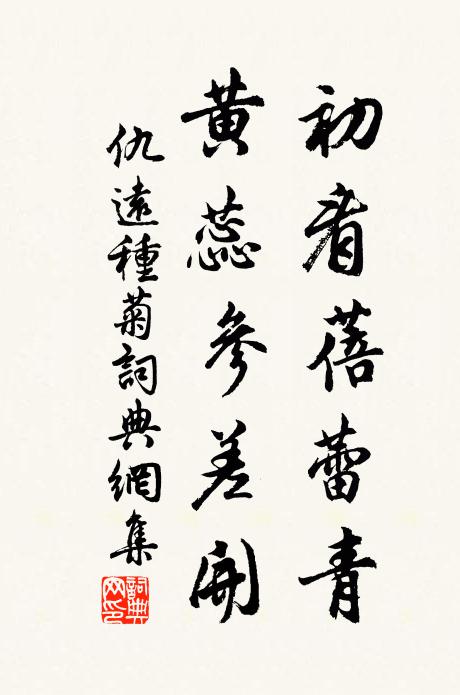 初看蓓蕾青
黃蕊參差開
仇遠種菊詞典網集
詞典網印